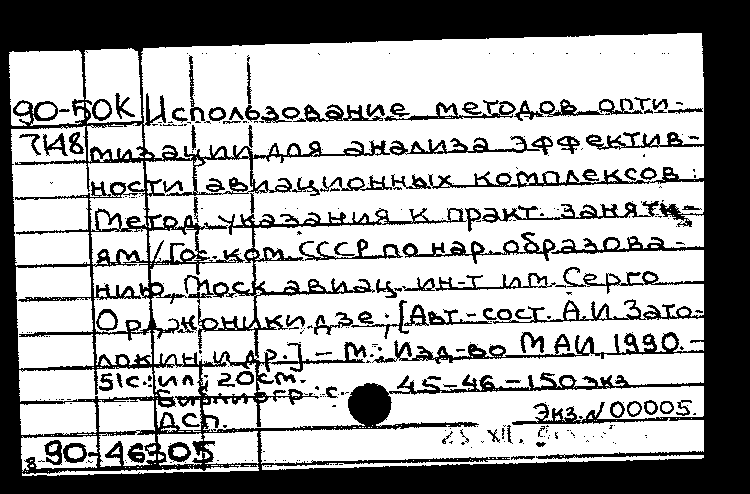 90-50К Использование методов опти-
7148 мизации для анализа эффектив-
ности авиационных комплексов :
Метод. указания к практ. заняти-
ям / Гос. ком. СССР по нар. образова-
нию, Моск авиац. ин-т им. Серго
Орджоникидзе ; [Авт.-сост. А.И. Зато-
локин и др.]. - М. : Изд-во МАИ, 1990. -
51с. : ил ; 20см.
Библиогр : с 45-46. - 150 экз
ДСП. Экз. N 00005.
23 XII.
в 90-46305